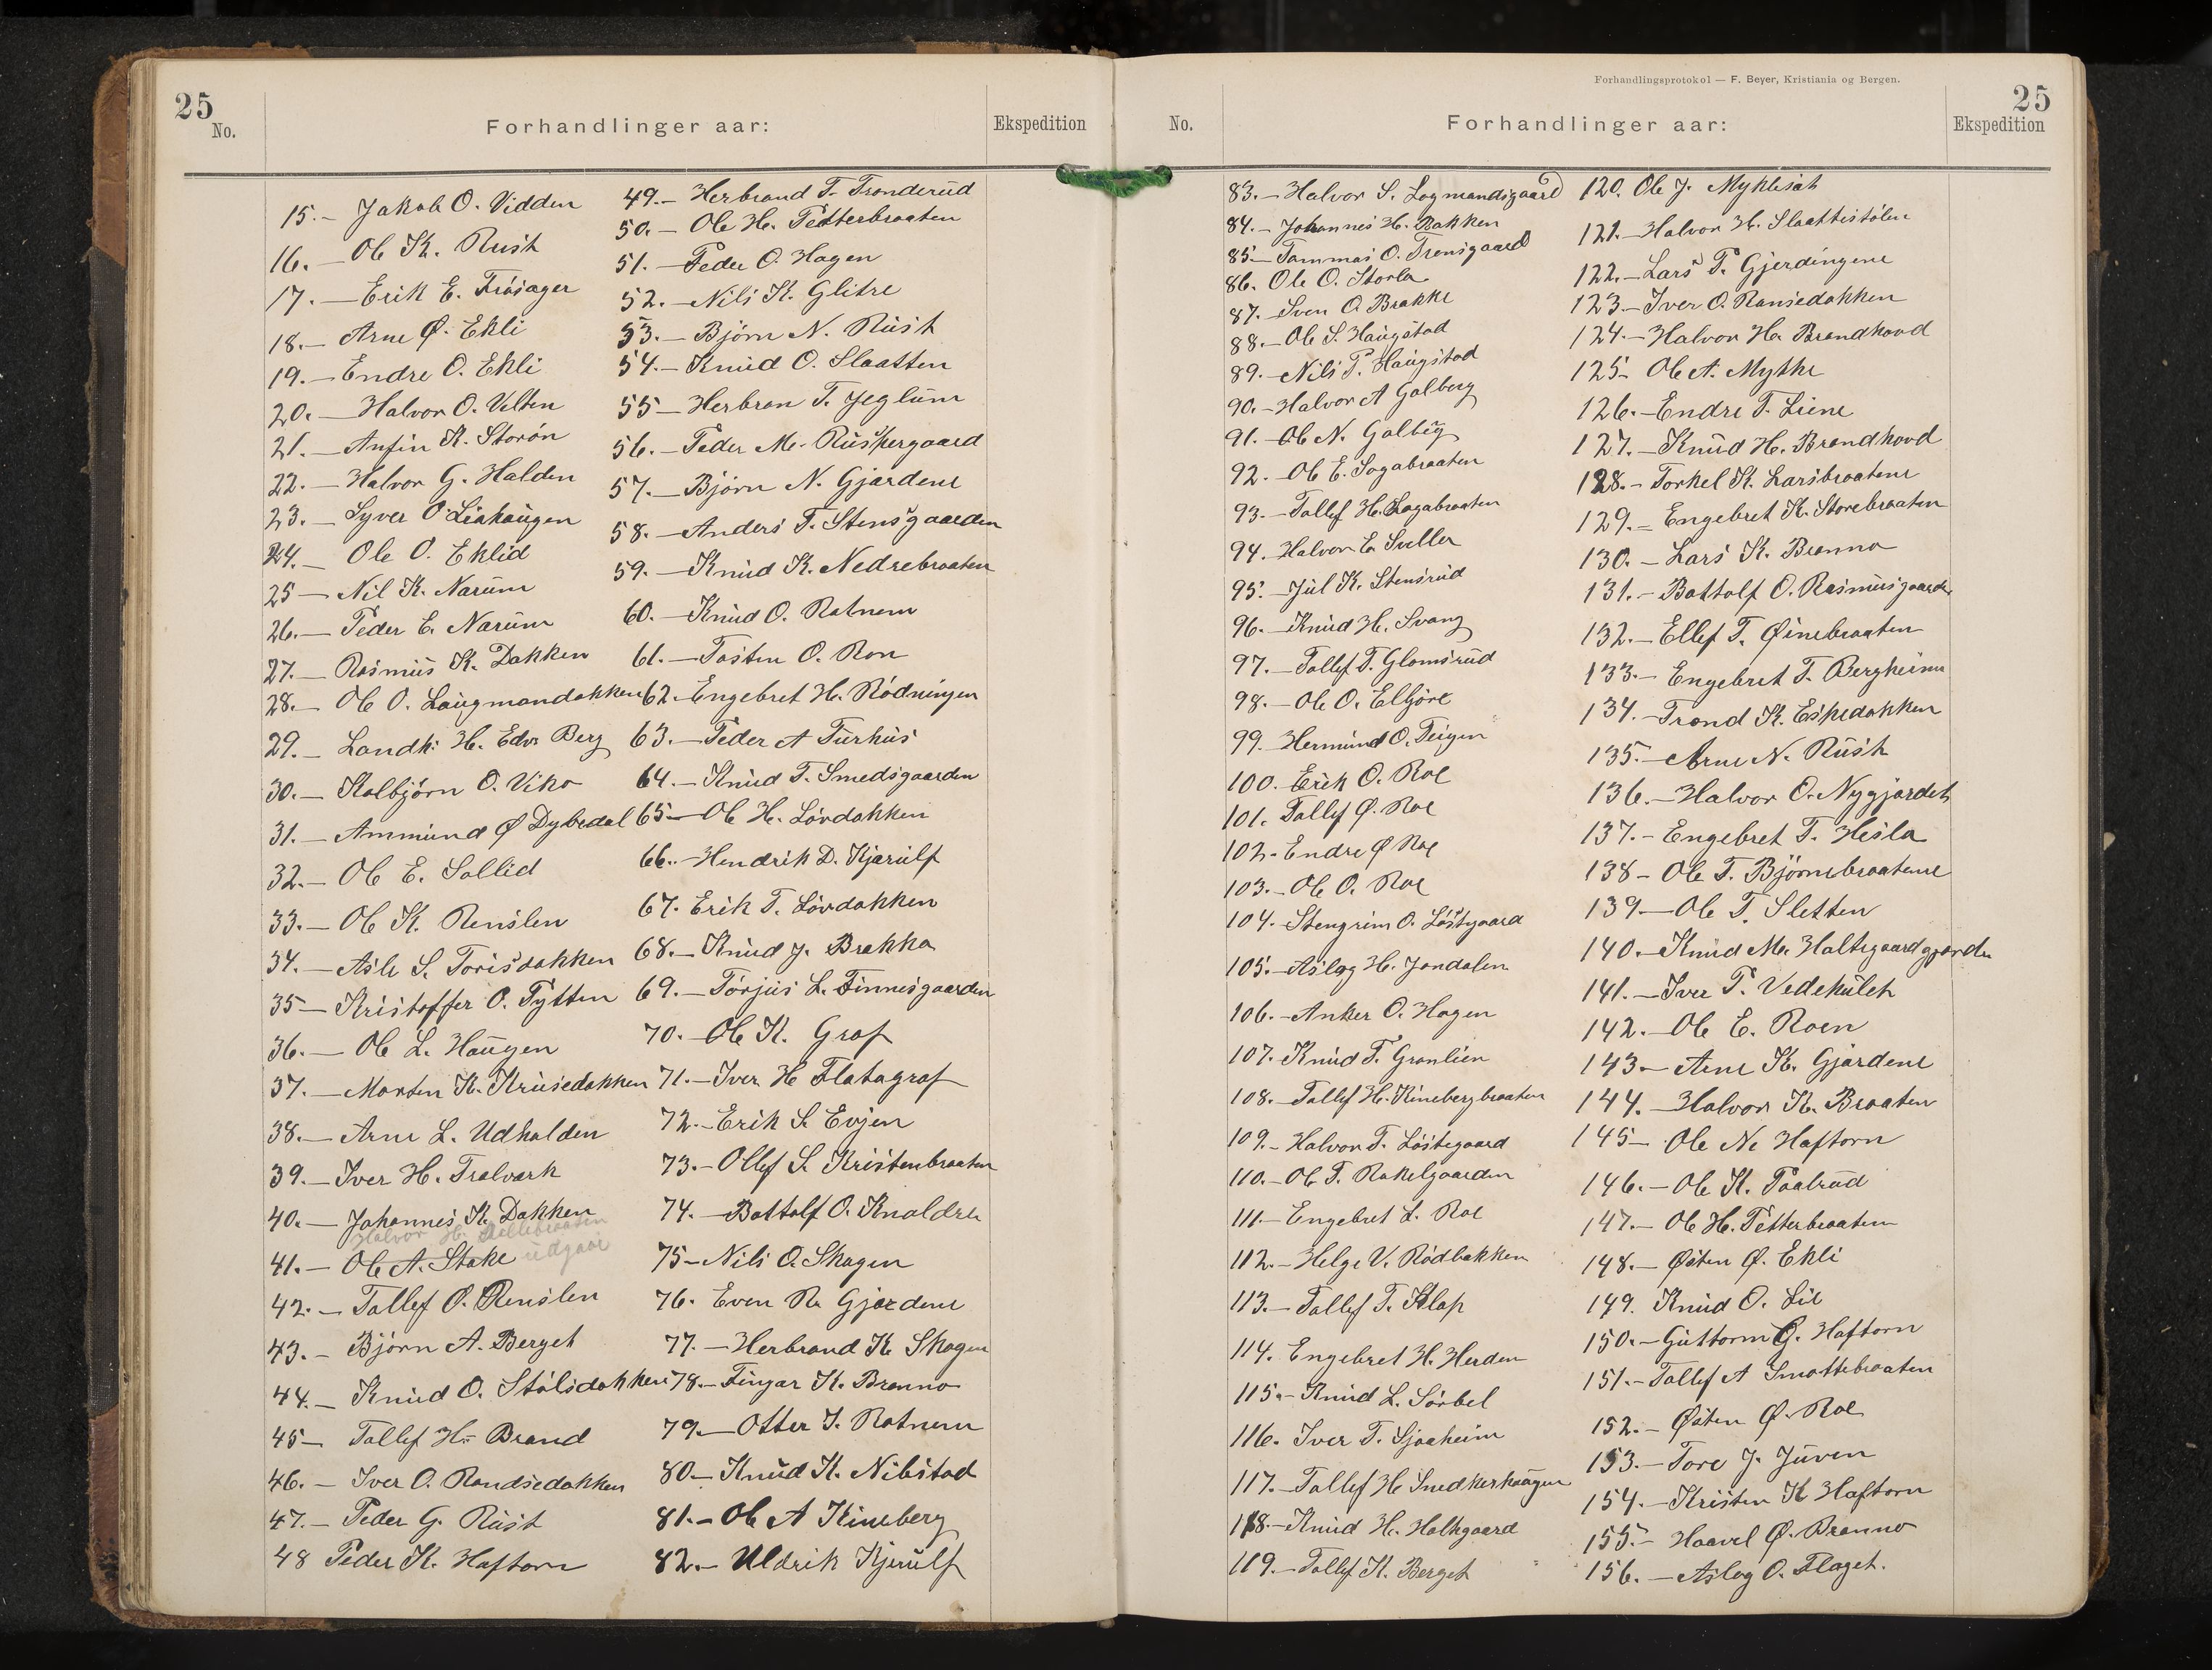 25
No.
Forhandlinger aar:
Ekspedition
15.- Jakob O. Vidden
16.- Ole K. Rust
17.- Erik E. Frøsager
18.- Arne Ø. Ekli
19.- Endre O. Ekli
20.- Halvor O. Velten
21.- Anfin K. Storøn
22.- Halvor G. Halden
23.- Syver O Liahaugen
24.- Ole O. Eklid
25- Nil K. Narum
26.- Peder E. Narum
27.- Rasmus K. Dokken
28.- Ole O. Laugmandokken
29.- Landh: H. Edv. Berg
30.- Kolbjørn O. Viko
31.- Ammund Ø Dybedal
32.- Ole E. Sollid
33.- Ole K. Renslen
34.- Asle S. Torisdokken
35- Kristoffer O. Tytten
36.- Ole L. Haugen
37.- Morten K. Krusedokken
38.- Arne L. Udhalden
39.- Iver H. Tralvark
40.- Johannes K. Dokken
Halvor H.
41.- Ole A. Stake udgaar
42.- Tollef O. Renslen
43.- Bjørn A. Berget
44.- Knud O. Stølsdokken
45- Tollef H. Brand
46.- Iver O. Randsedokken
47.- Peder G. Rust
48 Peder K. Haftorn
49.- Herbrand T. Tronderud
50.- Ole H. Petterbraaten
51.- Peder O. Hagen
52.- Nils K. Glitre
53.- Bjørn N. Rust
54.- Knud O. Slaatten
55- Herbran T. Jeglum
56.- Peder M. Ruspergaard
57.- Bjørn N. Gjardene
58.- Anders T. Stensgaarden
59.- Knud K. Nedrebraaten
60.- Knud O. Ratnem
61.- Tosten O. Ron
62.- Engebret H. Rødningen
63.- Peder A Turhus
64.- Knud T. Smedsgaarden
65- Ole H. Løvdokken
66.- Hendrik D. Kjerulf
67. Erik T. Løvdokken
68.- Knud J. Brakka
69.- Torjus L. Finnesgaarden
70.- Ole K. Graf
71.- Iver H Flatagraf
72.- Erik S. Evjen
73.- Ollef S. Kristenbraaten
74.- Bottolf O. Knaldre
75- Nils O. Skagen
76. Even R. Gjerdene
77.- Herbrand K. Skogen
78.- Fingar K. Brenno
79.- Otter I. Ratnem
80.- Knud K. Nibstad
81.- Ole A Kineberg
82.- Uldrik Kjerulf
Forhandlingsprotokol — F. Beyer, Kristiania og Bergen.
25
No.
Forhandlinger aar:
Ekspedition
83.- Halvor S. Lagmandsgaard
84.- Johannes H. Bakken
85.- Tommas O. Trønsgaard
86. Ole O. Storla
87.- Sven O. Brakke
88.- Ole S. Haugstad
89.- Nils T. Haugstad
90.- Halvor A Golberg
91.- Ole N. Golberg
92.- Ole E. Sagabraaten
93.- Tollef H. Sagabraaten
94.- Halvor E. Sveller
95.- Jul K. Stensrud
96.- Knud H. Svang
97.- Tollef T. Glomsrud
98.- Ole O. Elgjøre
99. Hermund O. Teigen
100. Erik O. Roe
101. Tollef Ø. Roe
102.- Endre Ø Roe
103.- Ole O. Roe
104.- Stengrim O. Løstgaard
105.- Aslag H. Jondalen
106.- Anker O. Hagen
107.- Knud T. Grønlien
108.- Tollef H. Kinebergbraaten
109.- Halvor T. Løstegaard
110.- Ole T. Rukelgaarden
111.- Engebret L. Roe
112.- Helge V. Rødbakken
113.- Tollef T. Slap
114. Engebret H. Herden
115.- Knud L. Sørbel
116. Iver T. Sjoaheim
117.- Tollef H Snedkerhaugen
118.- Knud H. Holtegaard
119.- Tollef K. Berget
120. Ole J. Myklesat
121.- Halvor H. Slaattestølen
122.- Lars T. Gjerdingene
123.- Iver O. Ransedokken
124.- Halvor H. Brandhovd
125- Ole A. Mythe
126.- Endre T. Liene
127.- Knud H. Brandhovd
128.- Torkel K. Larsbraatene
129.- Engebret K. Storebraaten
130.- Lars K. Brenno
131.- Bottolf O. Rasmusgaarde
132.- Ellef T. Øinebraaten
133.- Engebret T. Bergheim
134.- Trond K. Espedokken
135.- Arne N. Rust
136.- Halvor O. Nygjordet
137.- Engebret T. Hesla
138- Ole T. Bjørnebraatene
139.- Ole T. Sletten
140.- Knud M. Haltegaardgjorde
141.- Iver T. Vedekulet
142.- Ole E. Roen
143.- Arne K. Gjardene
144.- Halvor K. Braaten
145- Ole N. Haftorn
146.- Ole K. Paalrud
147.- Ole H. Petterbraaten
148.- Østen Ø. Ekli
149. Knud O. Lie
150.- Guttorm G. Haftorn
151.- Tollef A Smøttebraaten
152.- Østen Ø. Roe
153.- Tore J. Juven
154.- Kristen K Haftorn
155.- Haavel Ø. Brenno
156.- Aslag O. Flaget.